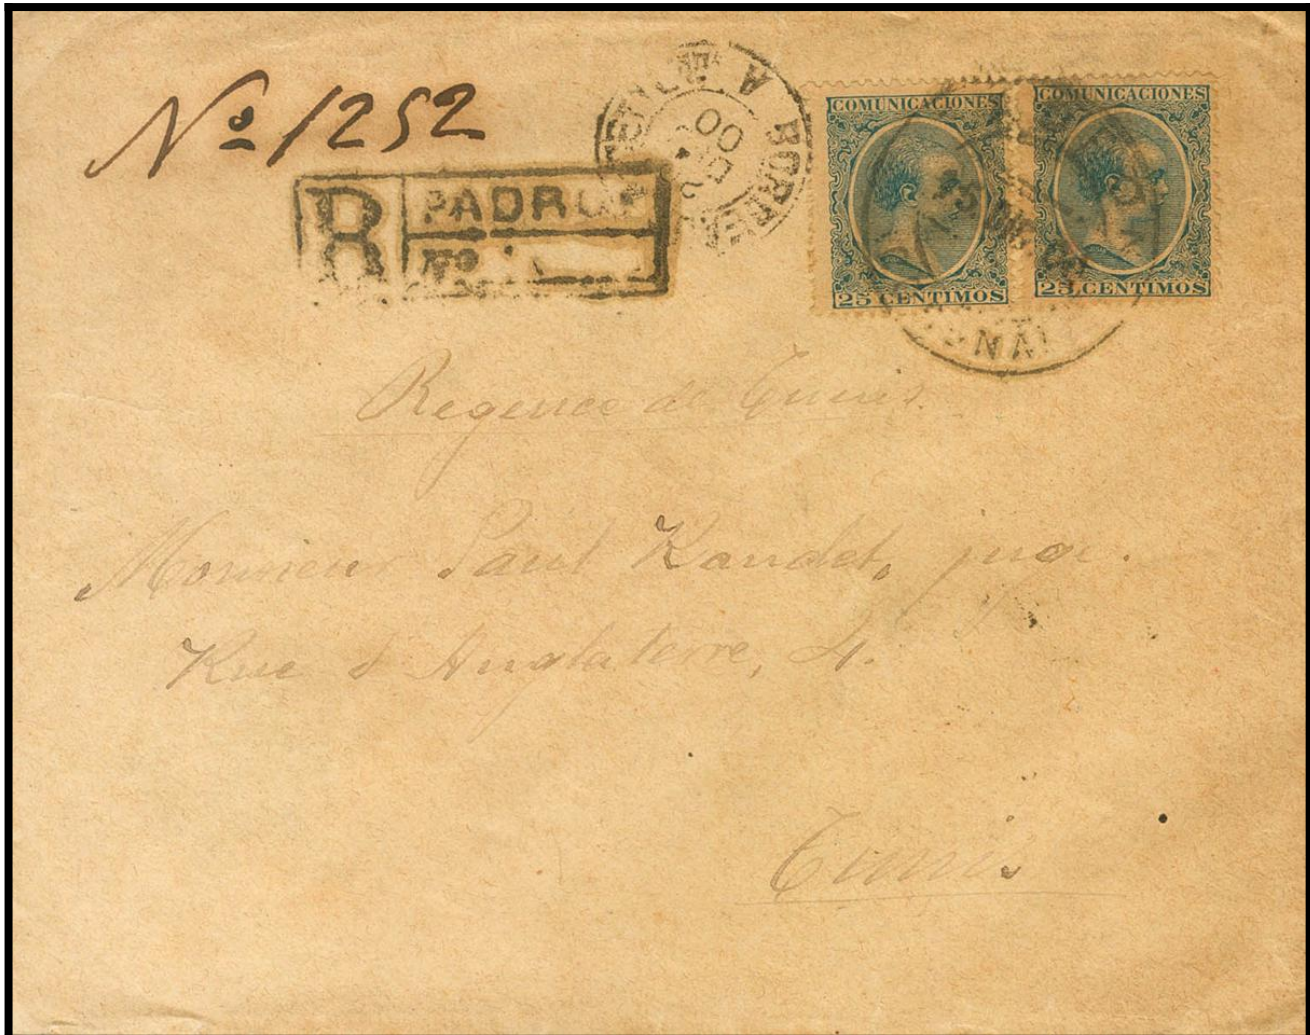 Nº 1252
R PADRON
Nº
COMUNICACIONES
25 CENTIMOS
COMUNICACIONES
25 CENTIMOS
Regence de Tunis.
Monsieur Paul
Rue d'Angleterre, 4.
Tunis